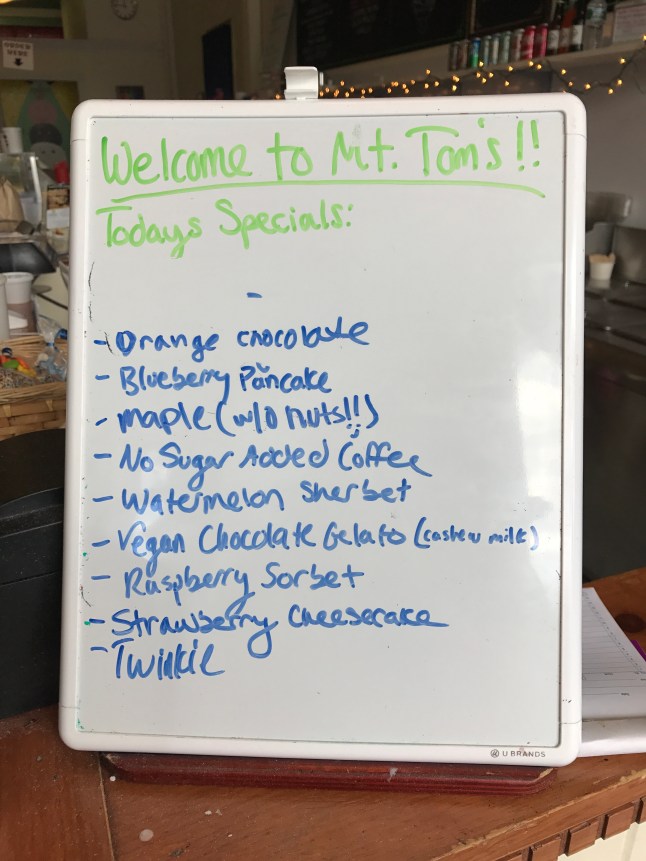 ORDER HERE
Welcome to Mt. Tom's!!
Todays Specials:
-
- Orange chocolate
- Blueberry Pancake
- maple (w/o nuts!!)
- No Sugar Added Coffee
- Watermelon Sherbet
- Vegan Chocolate Gelato (cashew milk)
- Raspberry Sorbet
- Strawberry Cheesecake
- Twinkie
U BRANDS